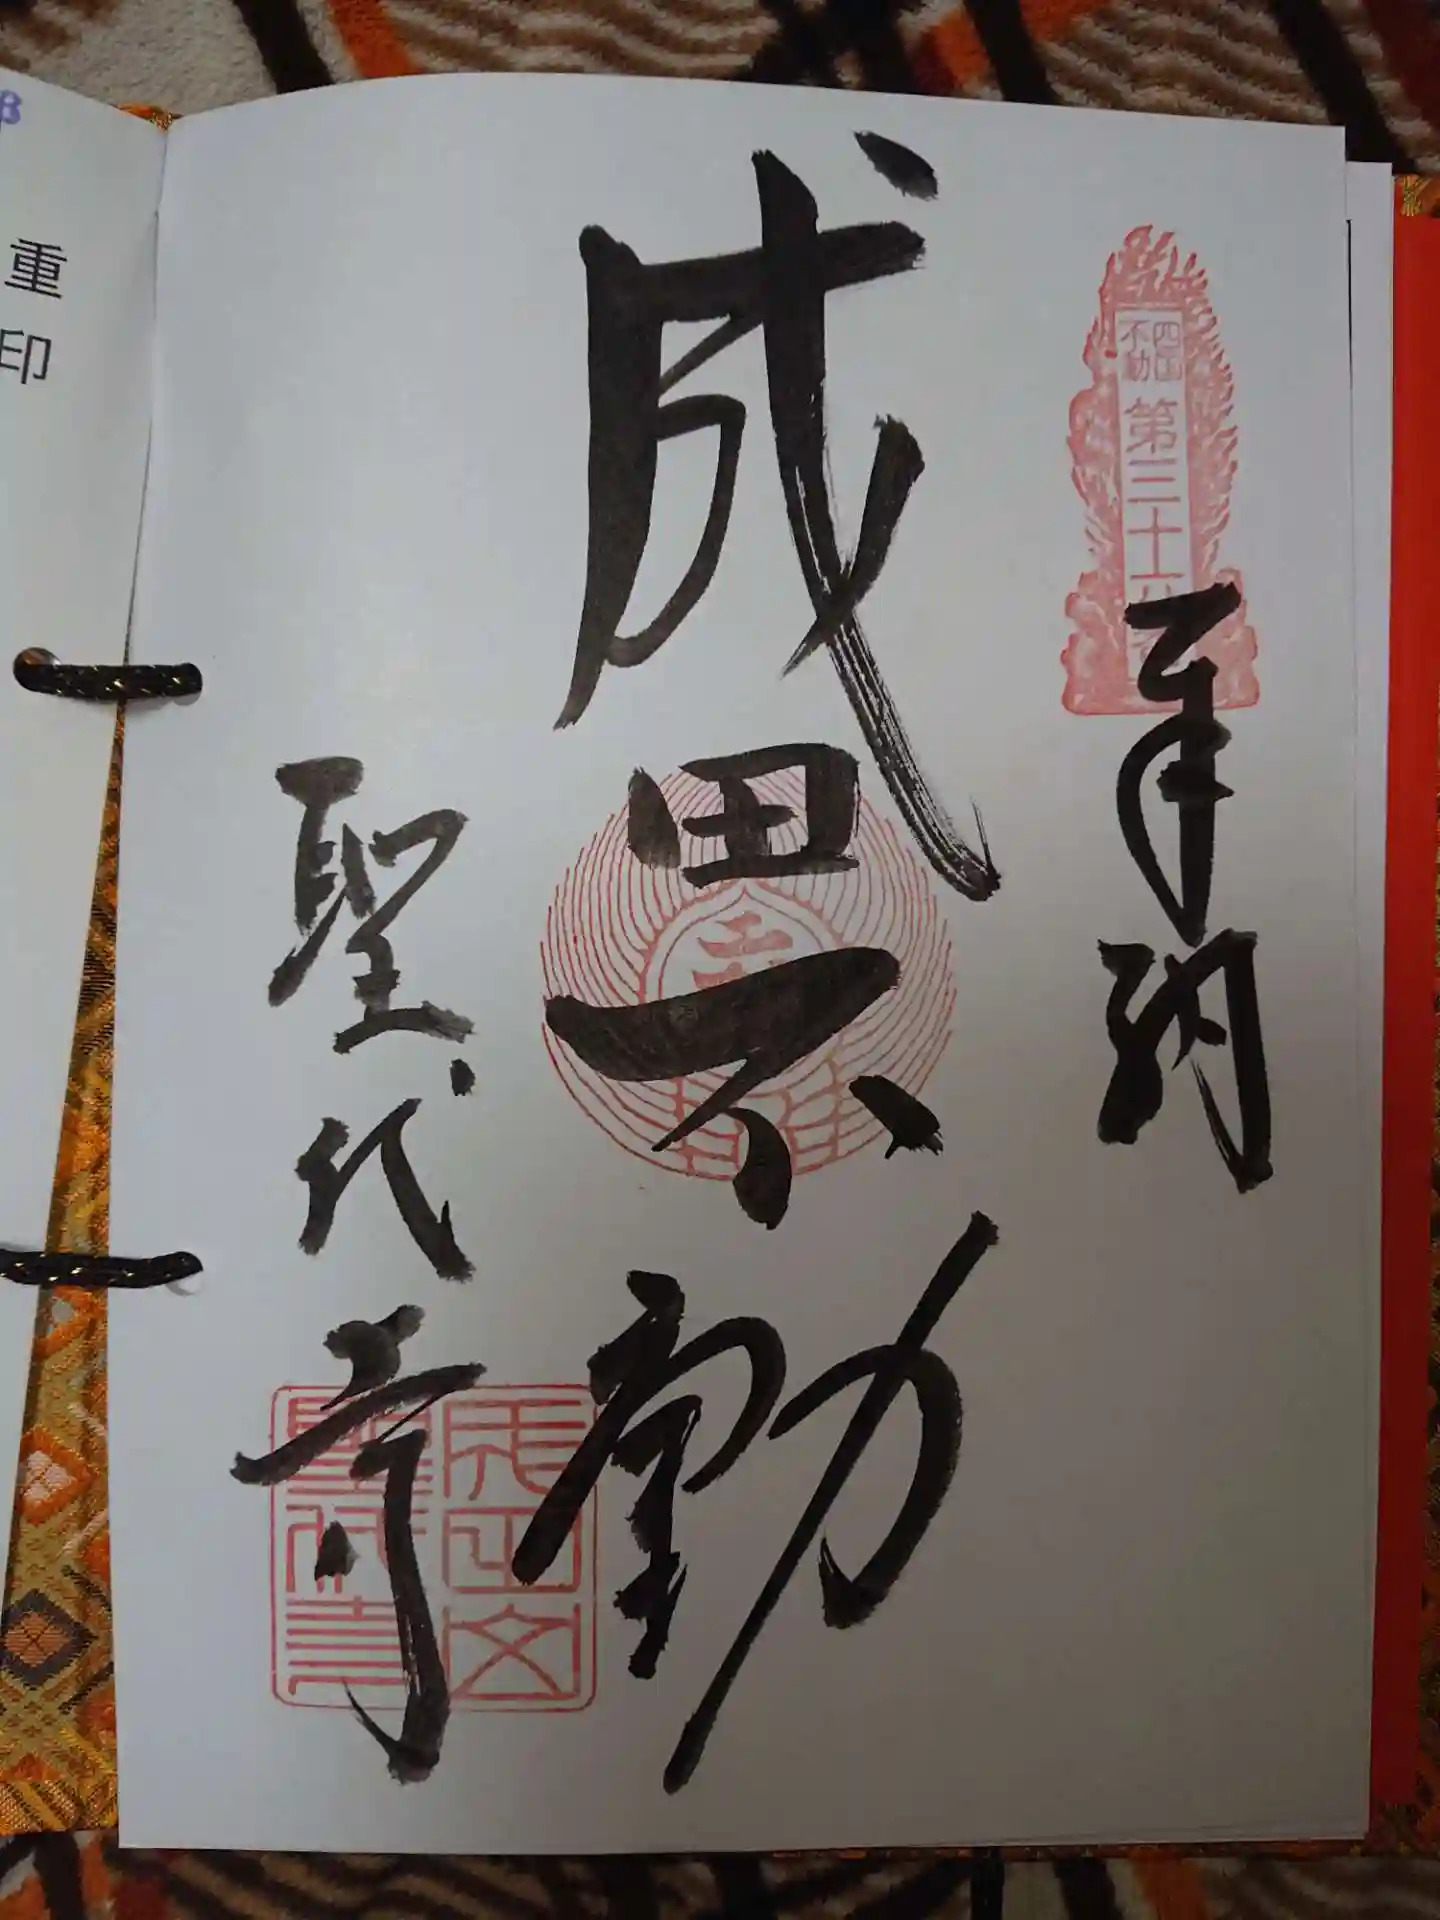 四国
不動
第三十六番
奉納
成田不動
聖代寺
成田山
聖代寺
重印